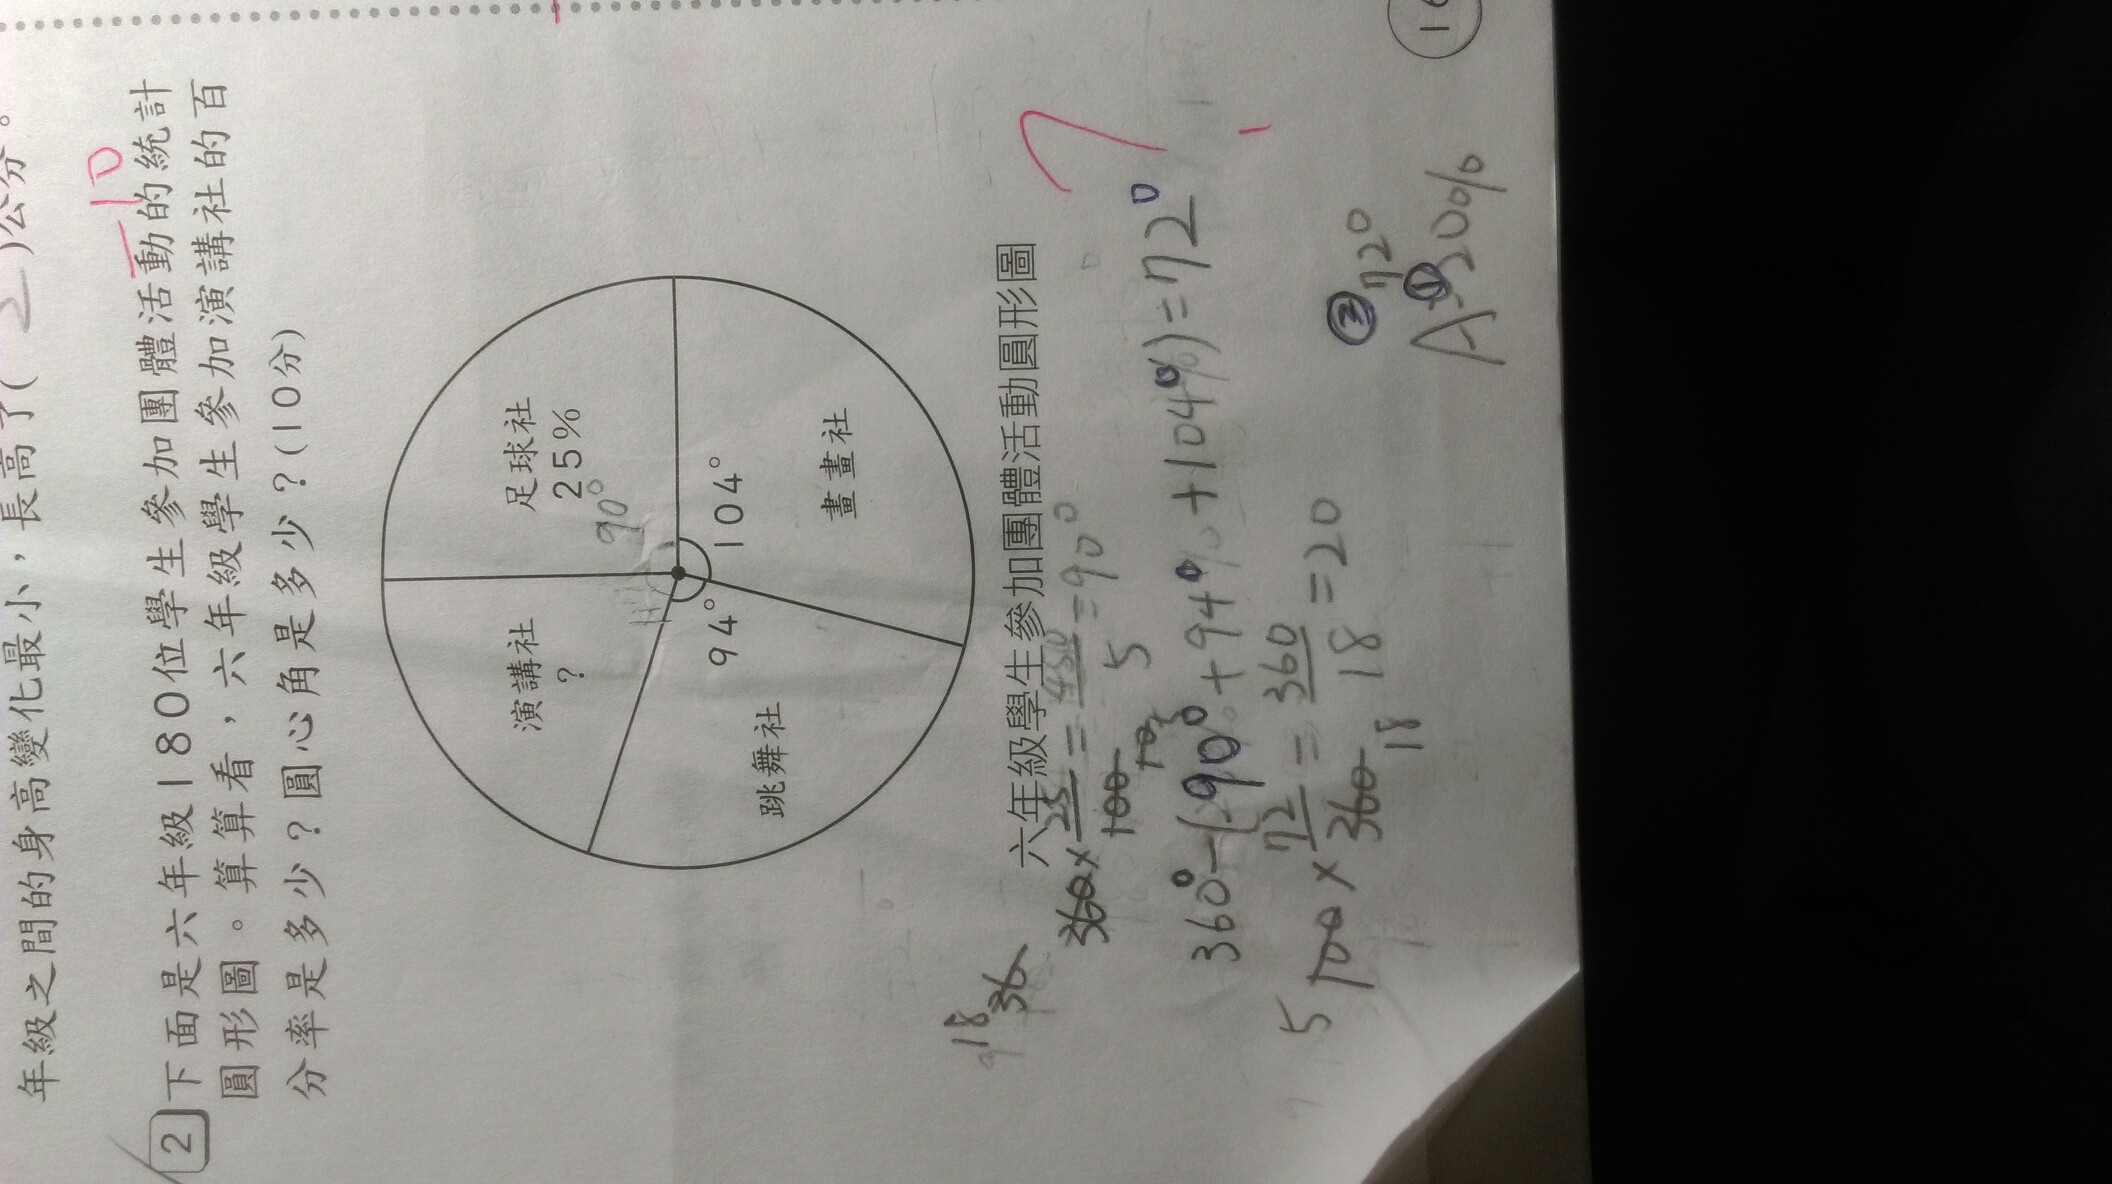 年級之間的身高變化最小，長高了( 2 )公分。
-10
2 下面是六年級180位學生參加團體活動的統計
圓形圖。算算看，六年級學生參加演講社的百
分率是多少？圓心角是多少？(10分)
演講社
?
足球社
25%
90°
94°
104°
跳舞社
畫畫社
六年級學生參加團體活動圓形圖
18
36
360×25/100=450/5=90°
360°-(90°+94°+104°)=72°
5 100×72/360=360/18=20
18
② 72°
A:① 20%